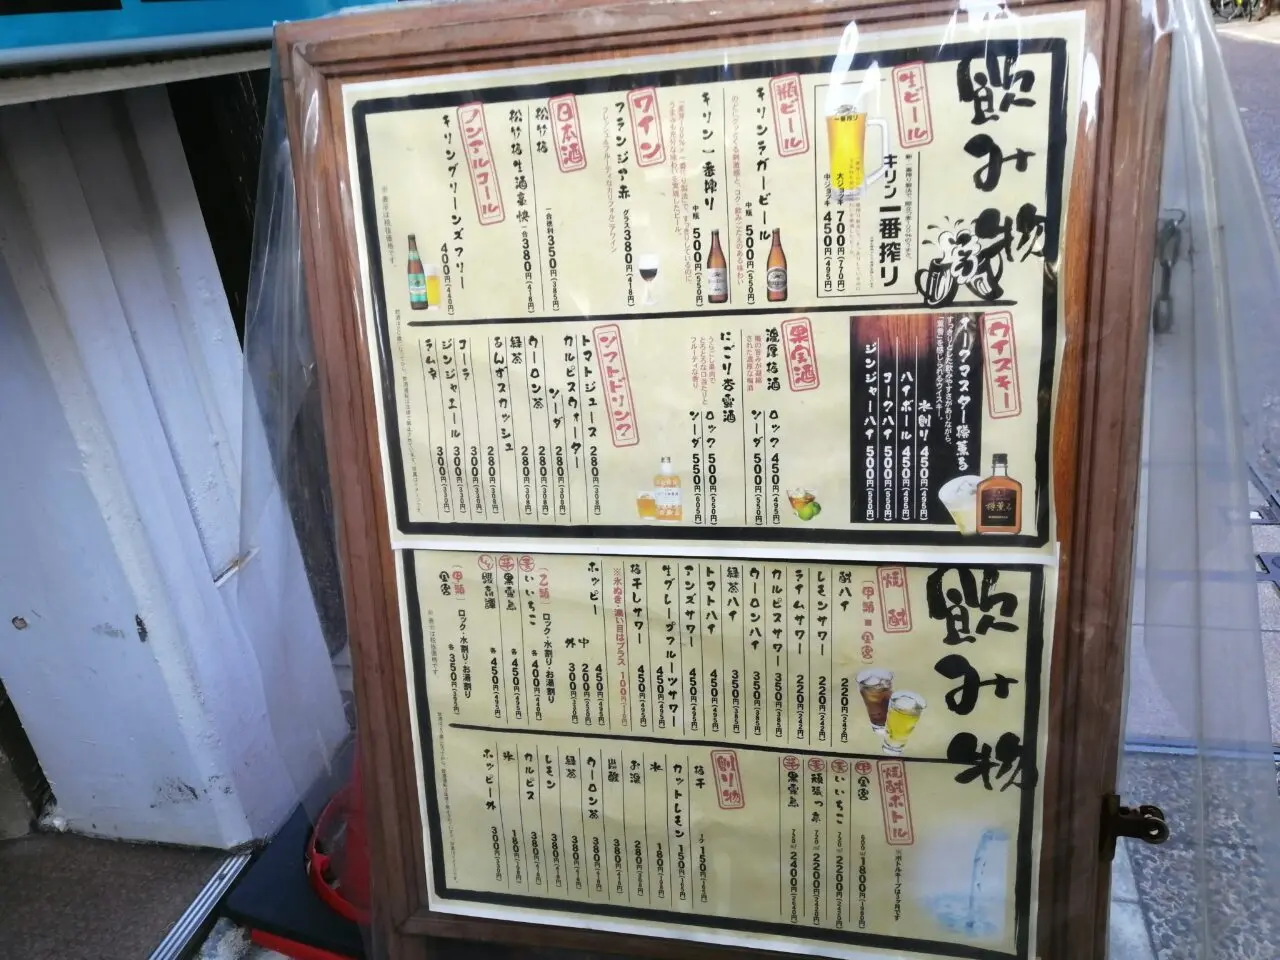 飲み物
生ビール
キリン一番搾り
大ジョッキ 700円(770円)
中ジョッキ 450円(495円)
瓶ビール
キリンラガービール
中瓶 500円(550円)
キリン一番搾り
中瓶 500円(550円)
ワイン
フランジア赤
フレッシュ&フルーティなカリフォルニアワイン
グラス 380円(418円)
日本酒
松竹梅
一合徳利 350円(385円)
松竹梅生酒豪快
一合 380円(418円)
ノンアルコール
キリングリーンズフリー
400円(440円)
※表示は税抜価格です。
ウイスキー
オークマスター樽薫る
水割り 450円(495円)
ハイボール 450円(495円)
コークハイ 500円(550円)
ジンジャーハイ 500円(550円)
果実酒
濃厚梅酒
ロック 450円(495円)
ソーダ 500円(550円)
にごり杏露酒
ロック 500円(550円)
ソーダ 550円(605円)
ソフトドリンク
トマトジュース 280円(308円)
カルピスウォーター 280円(308円)
ソーダ 280円(308円)
ウーロン茶 280円(308円)
緑茶 280円(308円)
あんずスカッシュ 280円(308円)
コーラ 300円(330円)
ジンジャエール 300円(330円)
ラムネ 300円(330円)
飲み物
焼酎
酎ハイ 220円(242円)
レモンサワー 220円(242円)
ライムサワー 220円(242円)
カルピスサワー 350円(385円)
ウーロンハイ 350円(385円)
緑茶ハイ 350円(385円)
トマトハイ 450円(495円)
アンズサワー 450円(495円)
生グレープフルーツサワー 450円(495円)
梅干しサワー 450円(495円)
※氷ぬき・濃い目はプラス100円(110円)
ホッピー 450円(495円)
中 200円(220円)
外 300円(330円)
(乙類) ロック・水割り・お湯割り
麦 いいちこ 各400円(440円)
芋 黒霧島 各450円(495円)
各450円(495円)
(甲類) ロック・水割り・お湯割り
各350円(385円)
※表示は税抜価格です
焼酎ボトル
※ボトルキープは1ヶ月です
1800円(1980円)
麦 いいちこ 720ml 2200円(2420円)
720ml 2200円(2420円)
芋 黒霧島 720ml 2400円(2640円)
割り物
梅干 1ケ 150円(165円)
カットレモン 150円(165円)
氷 180円(198円)
お湯 280円
炭酸 380円(418円)
ウーロン茶 380円(418円)
緑茶 380円(418円)
レモン 380円(418円)
カルピス 380円(418円)
氷 180円
ホッピー外 300円(330円)